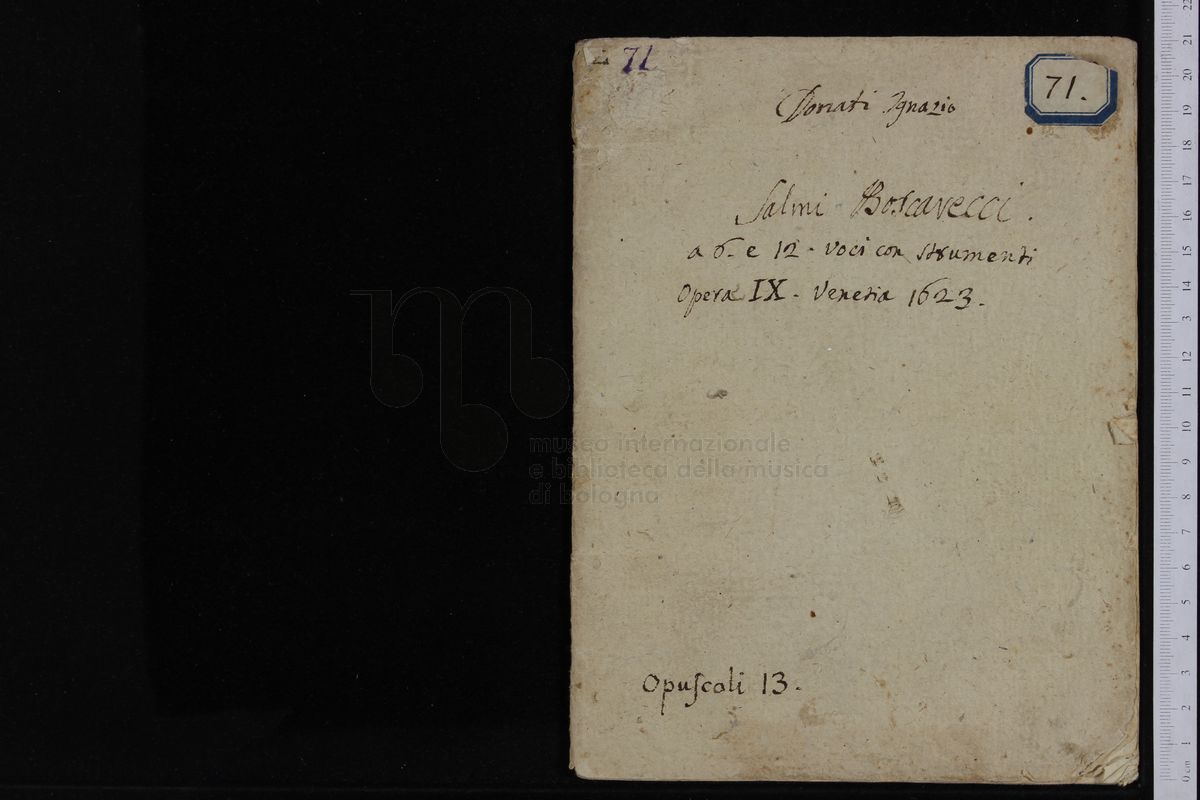 71
71.
Donati Ignazio
Salmi Boscarecci.
a 6. e 12. voci con strumenti
Opera IX. Venetia 1623.
museo internazionale
e biblioteca della musica
di bologna
Opuscoli 13.
22
21
20
19
18
17
16
15
14
13
12
11
10
9
8
7
6
5
4
3
2
1
0 cm